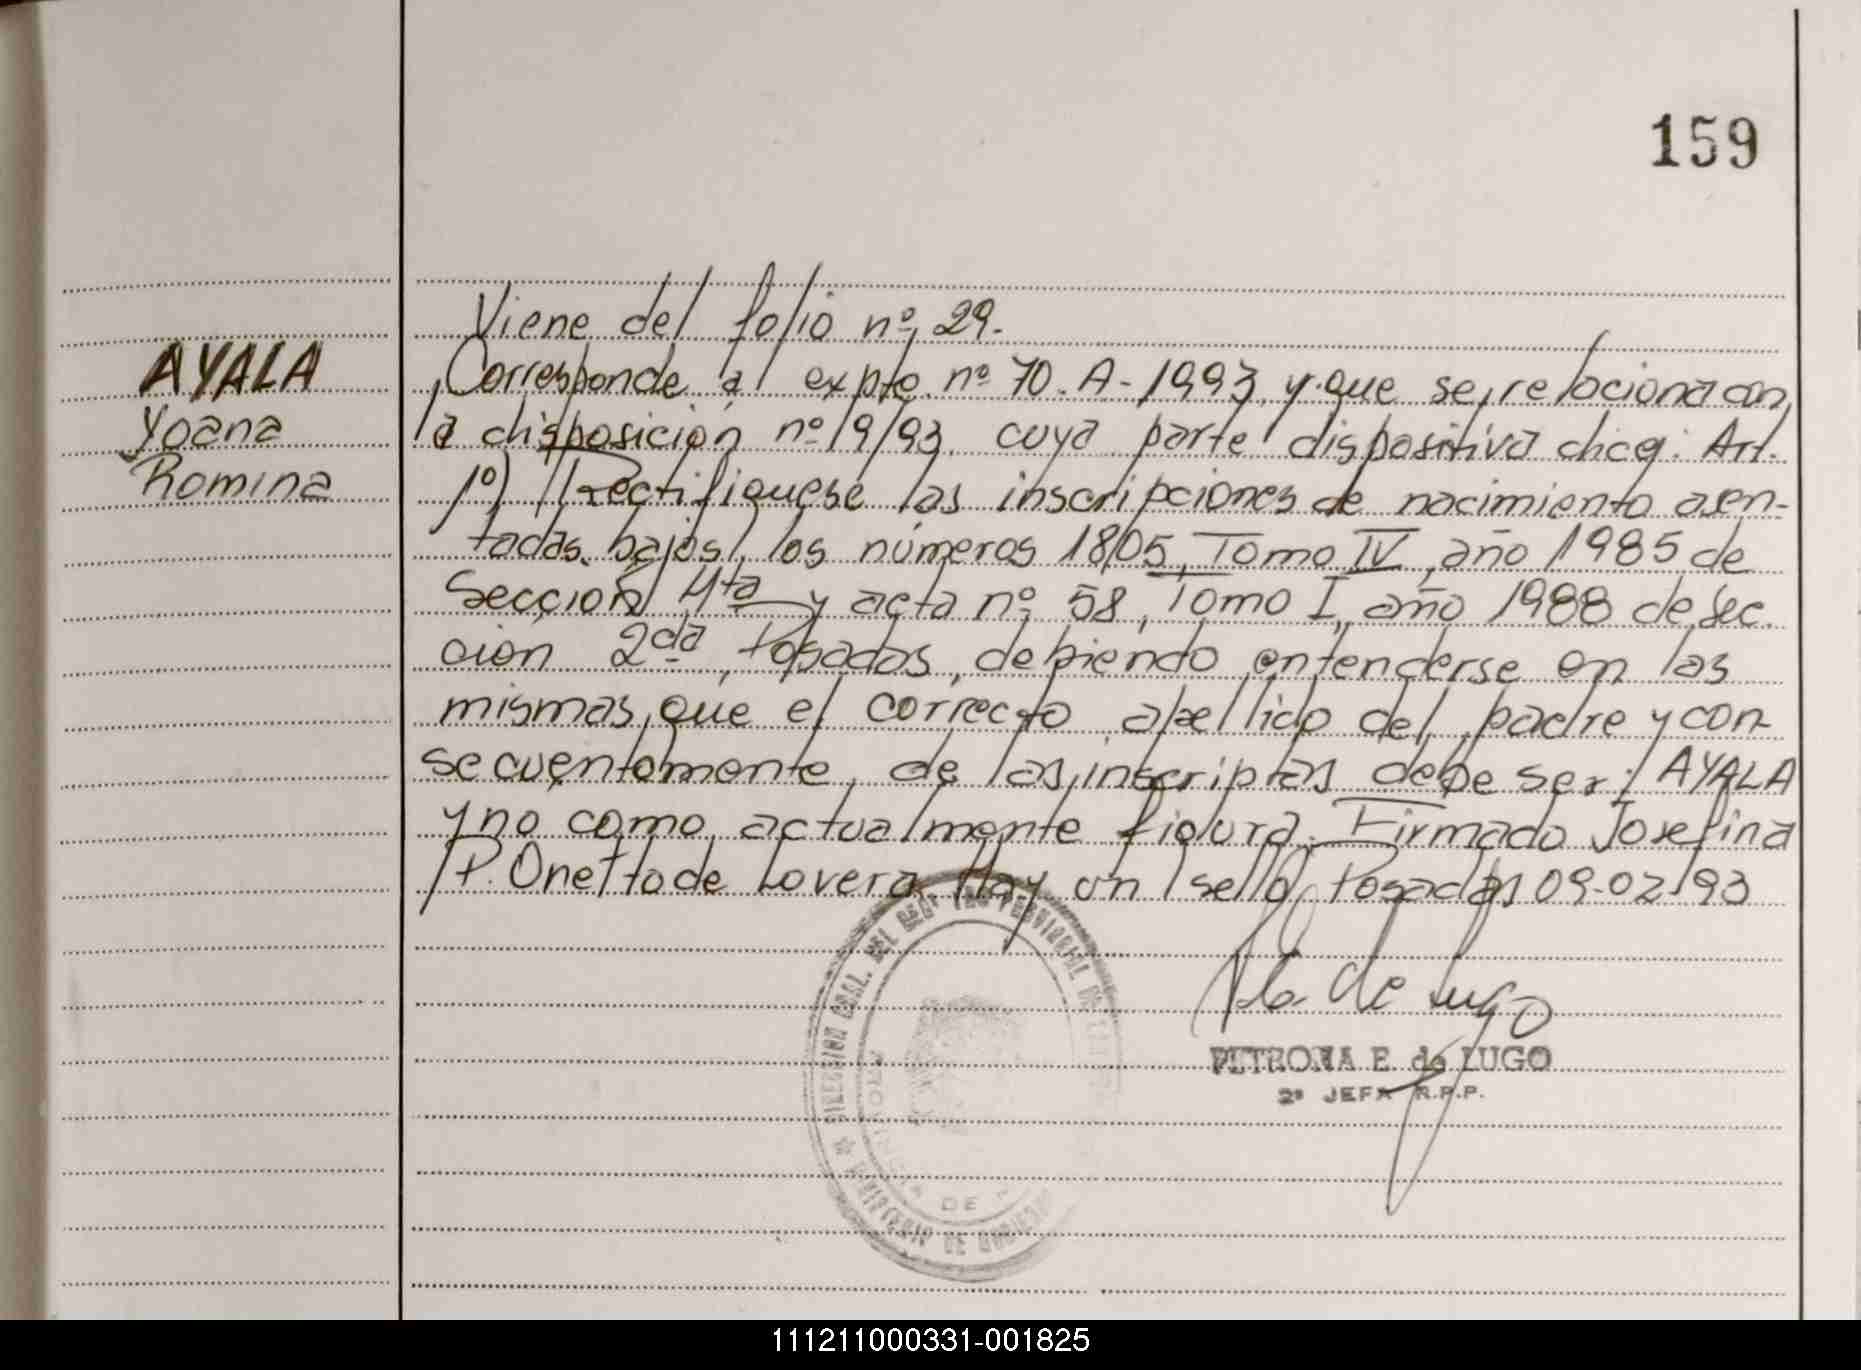 159
Viene del folio nº 29.
AYALA
Yoana
Romina
Corresponde al expte. nº 70. A - 1993, y que se relaciona con
la disposición nº 9/93 cuya parte dispositiva dice: Art.
1º) Rectifíquese las inscripciones de nacimiento asen-
tadas bajos los números 1805, Tomo IV, año 1985 de
Sección 4ta y acta nº 58, Tomo I, año 1988 de Sec.
cion 2da, Posadas, debiendo entenderse en las
mismas, que el correcto apellido del padre y con
secuentemente, de las inscriptas debe ser: AYALA
y no como actualmente figura. Firmado Josefina
P. Onetto de Lovera. Hay un sello Posadas 09-02-93
DIRECCION GRAL. DEL PROVINCIAL DE LAS
MINISTERIO DE GOBIERNO
PROVINCIA DE
de Lugo
PETRONA E. de LUGO
2º JEFA R.P.P.
111211000331-001825